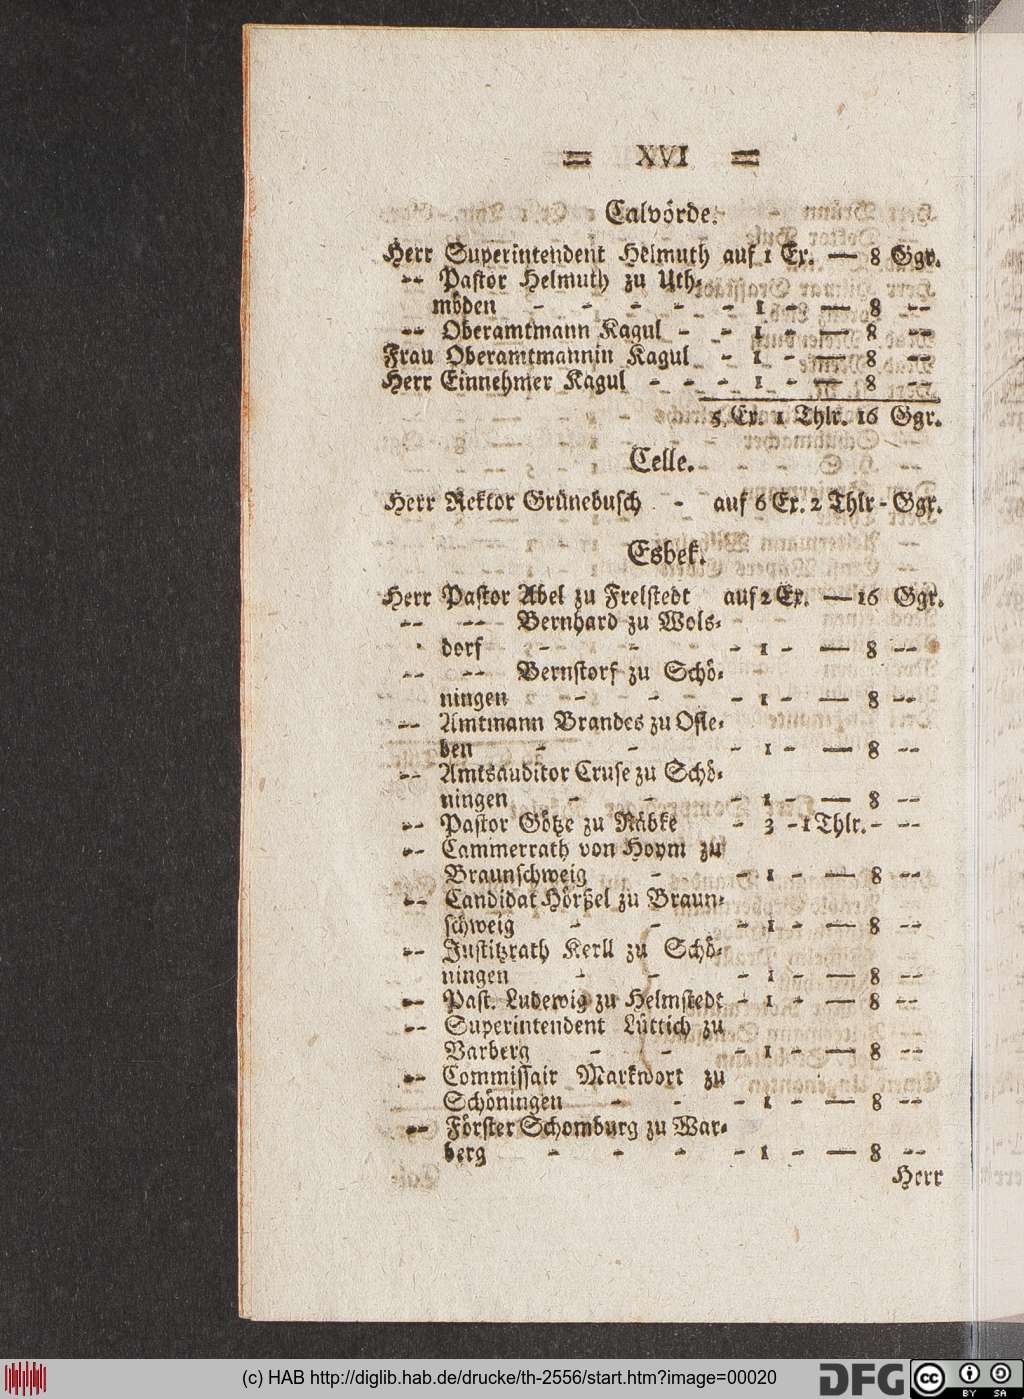 = XVI =
Calvörde.
Herr Superintendent Helmuth auf 1 Ex. — 8 Ggr.
-- Pastor Helmuth zu Uth-
möden - - - - - 1 - — 8 --
-- Oberamtmann Kagul - - 1 - — 8 --
Frau Oberamtmannin Kagul - 1 - — 8 --
Herr Einnehmer Kagul - - - 1 - — 8 --
5 Ex. 1 Thlr. 16 Ggr.
Celle.
Herr Rektor Grünebusch - auf 6 Ex. 2 Thlr - Ggr.
Esbek.
Herr Pastor Abel zu Frelstedt auf 2 Ex. — 16 Ggr.
-- -- Bernhard zu Wols-
dorf - - - 1 - — 8 --
-- -- Bernstorf zu Schö-
ningen - - - 1 - — 8 --
-- Amtmann Brandes zu Ofle-
ben - - - 1 - — 8 --
-- Amtsauditor Cruse zu Schö-
ningen - - - 1 - — 8 --
-- Pastor Götze zu Räbke - 3 - 1 Thlr. - --
-- Cammerrath von Hoym zu
Braunschweig - - 1 - — 8 --
-- Candidat Hörßel zu Braun-
schweig - - - 1 - — 8 --
-- Justitzrath Kerll zu Schö-
ningen - - - 1 - — 8 --
-- Past. Ludewig zu Helmstedt - 1 - — 8 --
-- Superintendent Lüttich zu
Varberg - - - 1 - — 8 --
-- Commissair Markwort zu
Schöningen - - - 1 - — 8 --
-- Förster Schomburg zu War-
berg - - - - 1 - — 8 --
Herr
(c) HAB http://diglib.hab.de/drucke/th-2556/start.htm?image=00020
DFG
cc BY SA